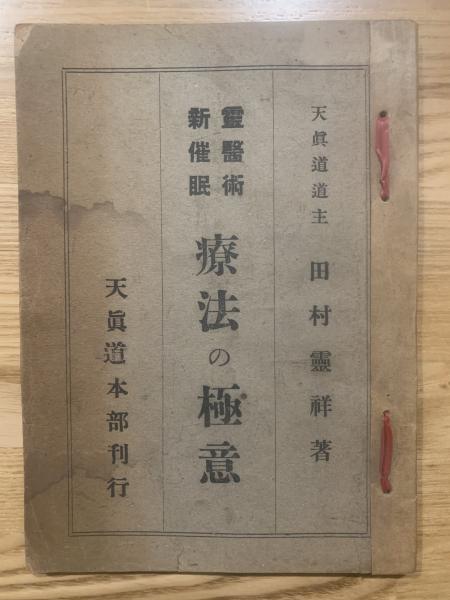 天眞道道主 田村靈祥著
靈醫術
新催眠
療法の極意
天眞道本部刊行